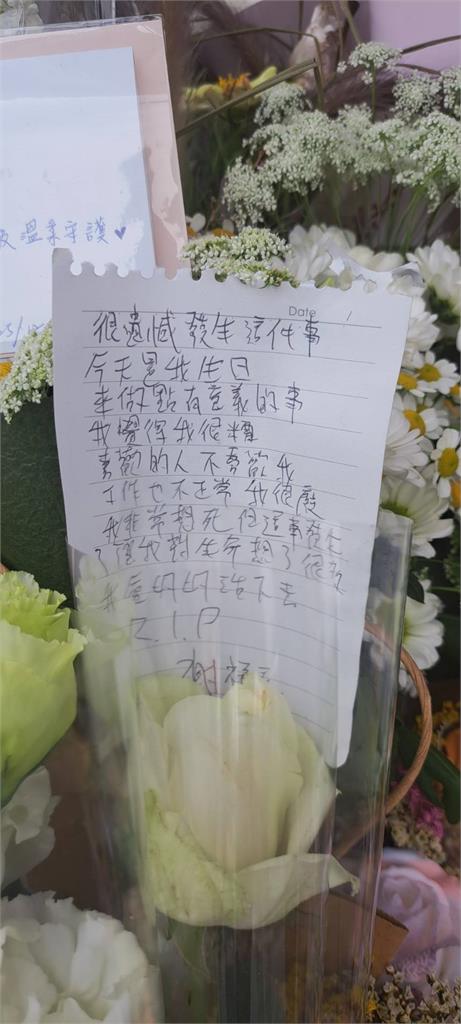 溫柔守護♥
Date /
很遺憾發生這件事
今天是我生日
來做點有意義的事
我覺得我很糟
喜歡的人不喜歡我
工作也不正常 我很廢
我非常想死 但這事發生
了 讓我對生命想了很多
我會好好活下去
R.I.P
謝